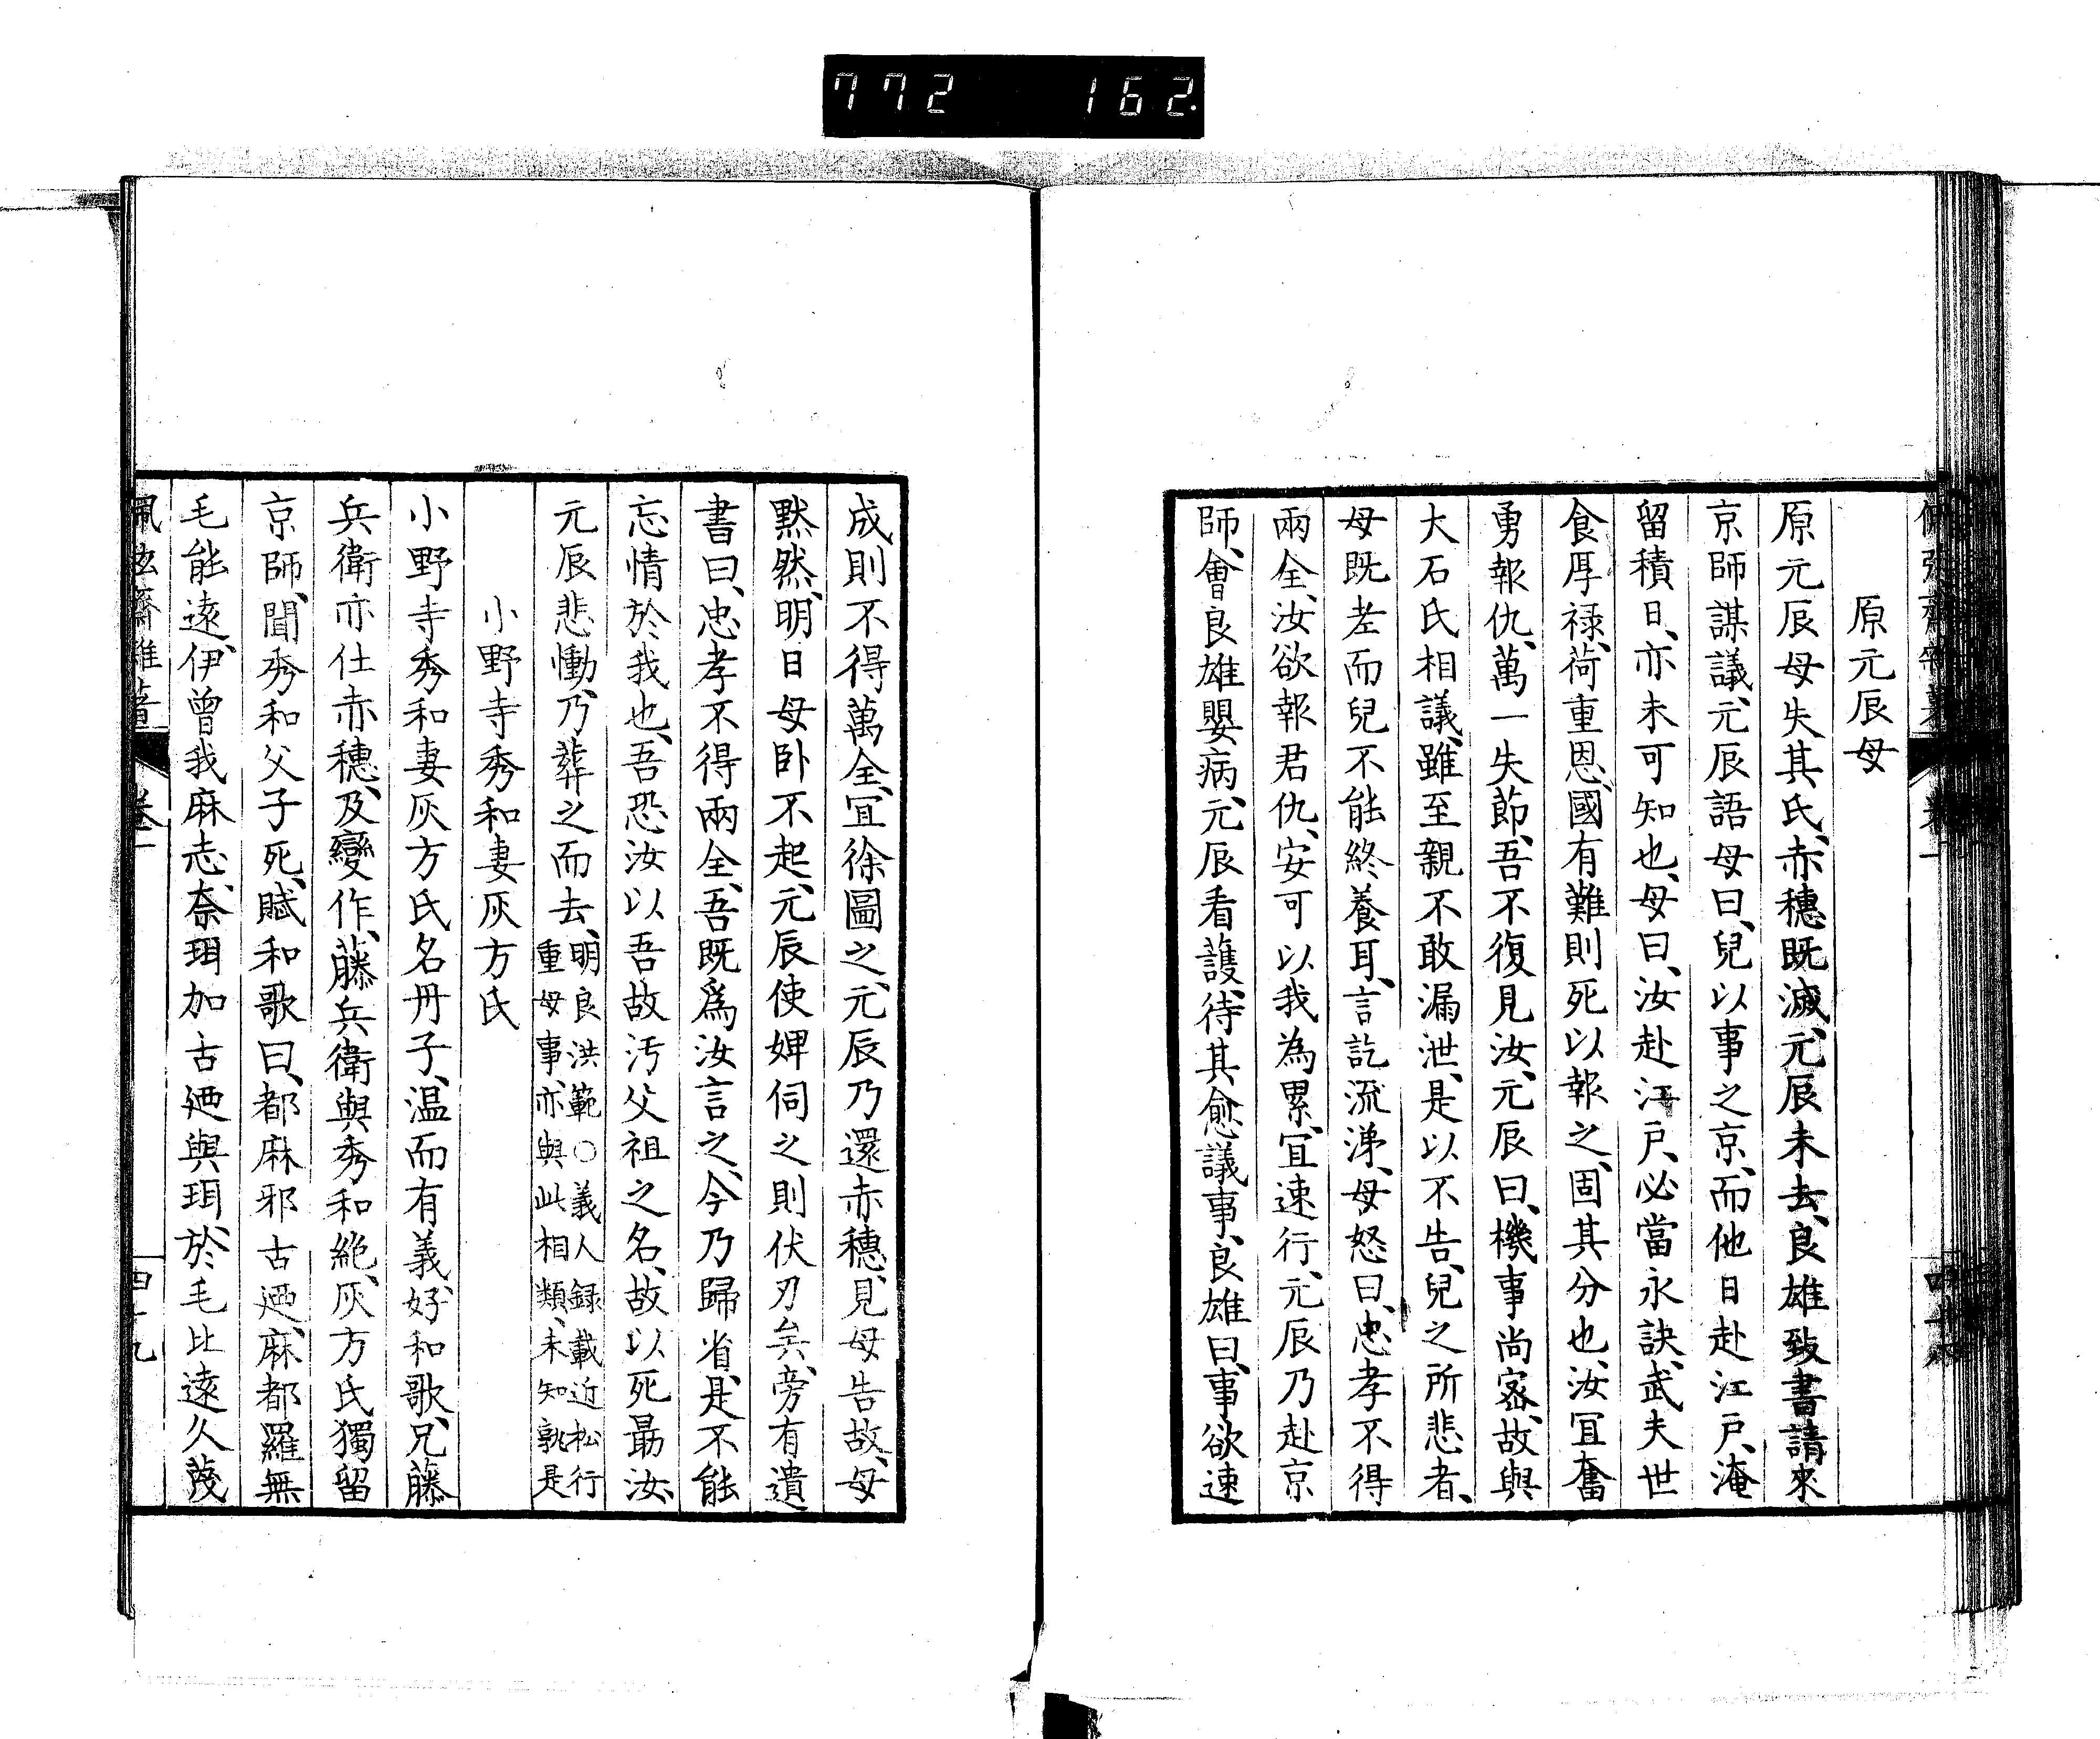 772 162.
原元辰母
原元辰母失其氏、赤穗既滅、元辰未去、良雄致書請來
京師謀議、元辰語母曰、兒以事之京、而他日赴江戸、淹
留積日、亦未可知也、母曰、汝赴江戸、必當永訣、武夫世
食厚祿、荷重恩、國有難則死以報之、固其分也、汝宜奮
勇報仇、萬一失節、吾不復見汝、元辰曰、機事尚密、故與
大石氏相議、雖至親不敢漏泄、是以不告、兒之所悲者、
母既老而兒不能終養耳、言訖流涕、母怒曰、忠孝不得
兩全、汝欲報君仇、安可以我為累、宜速行、元辰乃赴京
師、會良雄嬰病、元辰看護、待其愈議事、良雄曰、事欲速
成則不得萬全、宜徐圖之、元辰乃還赤穗、見母告故、母
默然、明日母卧不起、元辰使婢伺之則伏刃矣、旁有遺
書曰、忠孝不得兩全、吾既爲汝言之、今乃歸省、是不能
忘情於我也、吾恐汝以吾故汚父祖之名、故以死勗汝、
元辰悲慟、乃葬之而去、明良洪範○義人録載近松行
重母事、亦與此相類、未知孰是
小野寺秀和妻灰方氏
小野寺秀和妻灰方氏名丹子、温而有義、好和歌、兄藤
兵衛亦仕赤穗、及變作、藤兵衛與秀和絶、灰方氏獨留
京師、聞秀和父子死、賦和歌曰、都麻邪古迺、麻都羅無
毛能遠、伊曾我麻志、奈珥加古迺與珥、於毛比遠久蔑
佩弦齋雜著 卷一 四十九